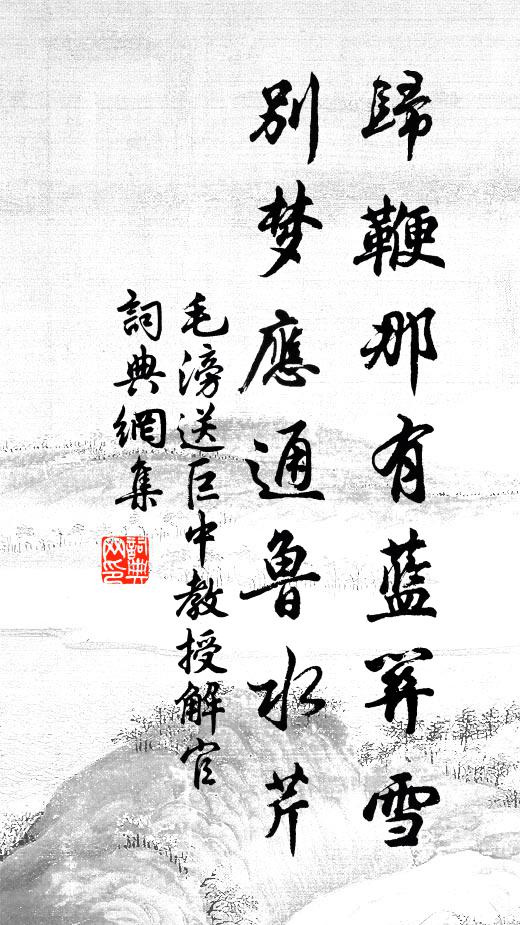 歸鞭那有藍笄雪
別梦應通魯水芹
毛滂送巨中教授解官
詞典網集
詞典
网印